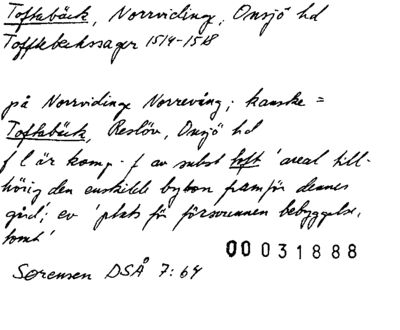 Toftabäck, Norrvidinge, Onsjö hd
Toffttebecksager 1514-1518
på Norrvidinge Norrevång; kanske =
Toftabäck, Reslöv, Onsjö hd
f l är komp. f av subst toft 'areal till-
hörig den enskilde bybon framför dennes
gård'; ev 'plats för försvunnen bebyggelse,
tomt'
00 031888
Sørensen DSÅ 7:64